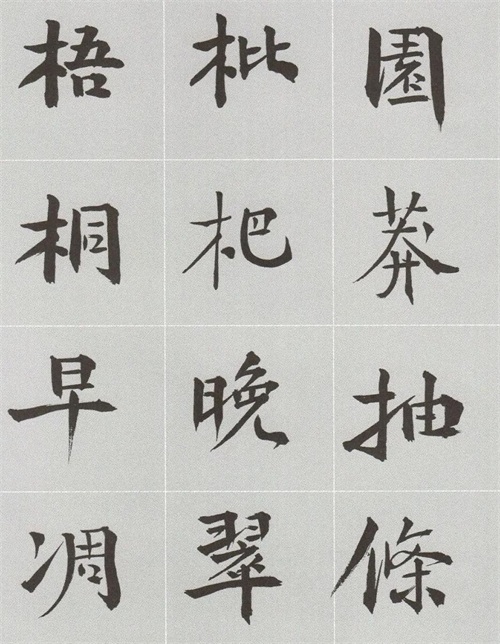 園莽抽條
枇杷晚翠
梧桐早凋